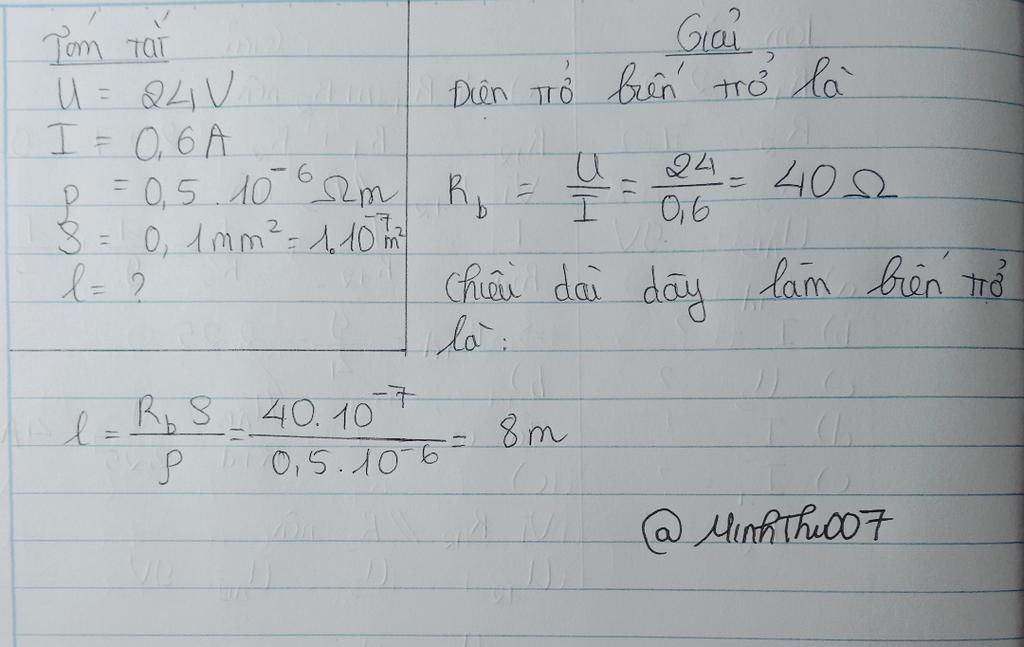 Tóm tắt
U = 24V
I = 0,6A
ρ = 0,5 . 10⁻⁶ Ωm
S = 0,1mm² = 1.10⁻⁷m²
l = ?
Giải
Điện trở biến trở là
R_b = U/I = 24/0,6 = 40Ω
Chiều dài dây làm biến trở
là:
l = R_b S/ρ = 40.10⁻⁷/0,5.10⁻⁶ = 8m
@MinhThu007